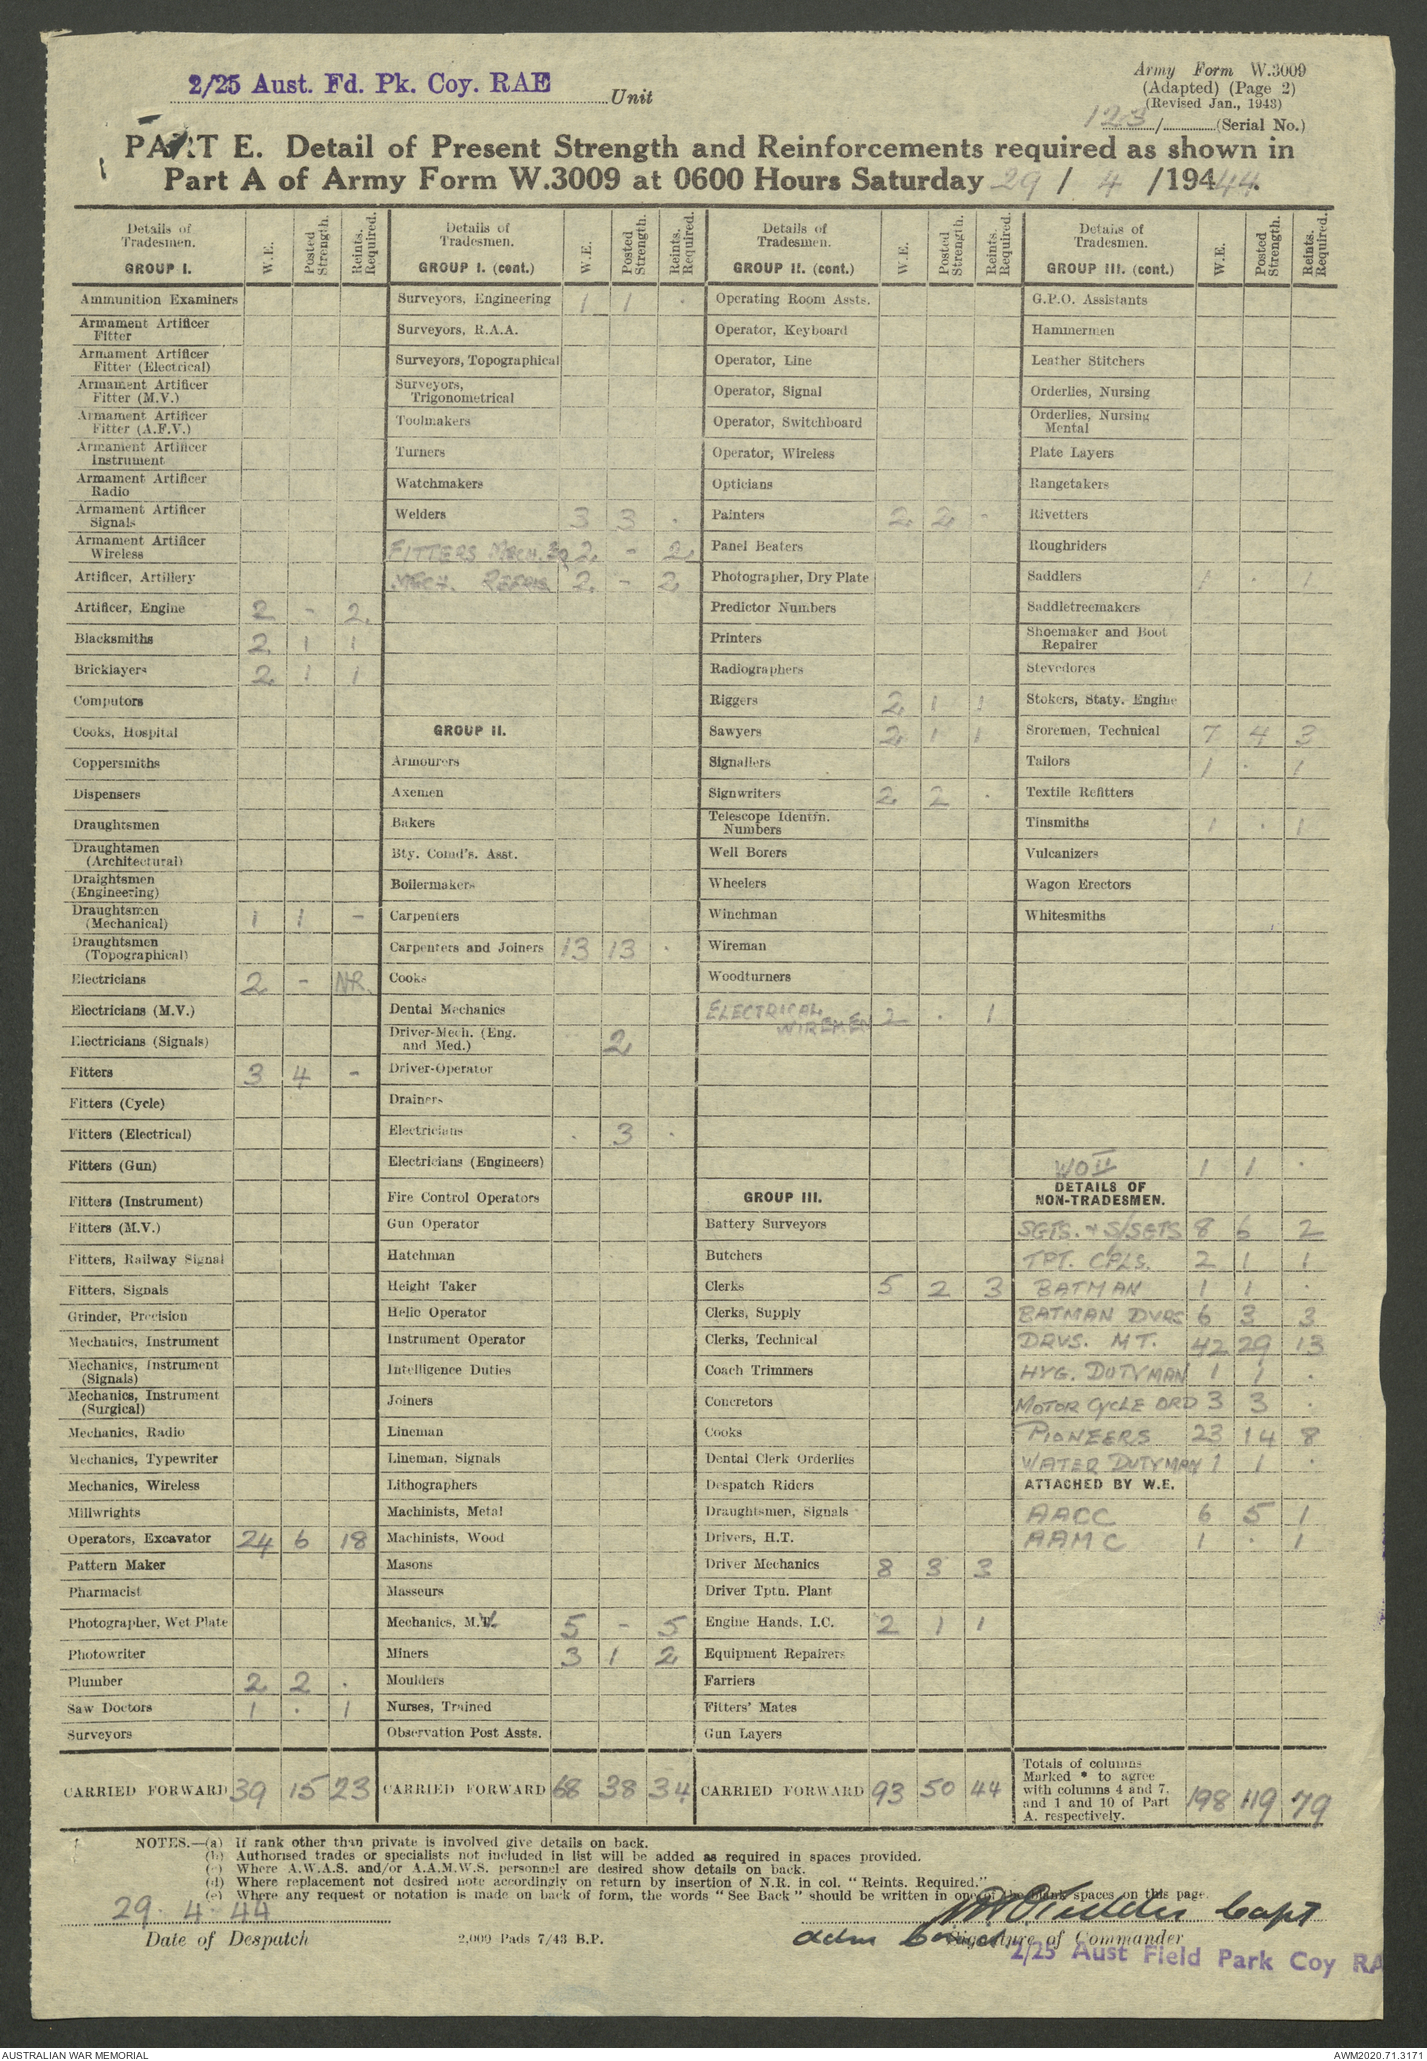 2/25 Aust. Fd. Pk. Coy. RAE Unit
Army Form W.3009
(Adapted) (Page 2)
(Revised Jan., 1943)
123/ (Serial No.)
PART E. Detail of Present Strength and Reinforcements required as shown in
Part A of Army Form W.3009 at 0600 Hours Saturday 29 / 4 / 19444.
Details of Tradesmen. GROUP I. W.E. Posted Strength. Reints. Required.
Ammunition Examiners
Armament Artificer Fitter
Armament Artificer Fitter (Electrical)
Armament Artificer Fitter (M.V.)
Armament Artificer Fitter (A.F.V.)
Armament Artificer Instrument
Armament Artificer Radio
Armament Artificer Signals
Armament Artificer Wireless
Artificer, Artillery
Artificer, Engine 2 - 2
Blacksmiths 2 1 1
Bricklayers 2 1 1
Computors
Cooks, Hospital
Coppersmiths
Dispensers
Draughtsmen
Draughtsmen (Architectural)
Draightsmen (Engineering)
Draughtsmen (Mechanical) 1 1 -
Draughtsmen (Topographical)
Electricians 2 - N.R.
Electricians (M.V.)
Electricians (Signals)
Fitters 3 4 -
Fitters (Cycle)
Fitters (Electrical)
Fitters (Gun)
Fitters (Instrument)
Fitters (M.V.)
Fitters, Railway Signal
Fitters, Signals
Grinder, Precision
Mechanics, Instrument
Mechanics, Instrument (Signals)
Mechanics, Instrument (Surgical)
Mechanics, Radio
Mechanics, Typewriter
Mechanics, Wireless
Millwrights
Operators, Excavator 24 6 18
Pattern Maker
Pharmacist
Photographer, Wet Plate
Photowriter
Plumber 2 2 .
Saw Doctors 1 . 1
Surveyors
CARRIED FORWARD 39 15 23
Details of Tradesmen. GROUP I. (cont.) W.E. Posted Strength. Reints. Required.
Surveyors, Engineering 1 1 .
Surveyors, R.A.A.
Surveyors, Topographical
Surveyors, Trigonometrical
Toolmakers
Turners
Watchmakers
Welders 3 3 .
FITTERS MECH. 2 - 2
MECH. 2 - 2
GROUP II.
Armourers
Axemen
Bakers
Bty. Comd's. Asst.
Boilermakers
Carpenters
Carpenters and Joiners 13 13 .
Cooks
Dental Mechanics
Driver-Mech. (Eng. and Med.) . 2
Driver-Operator
Drainers
Electricians . 3 .
Electricians (Engineers)
Fire Control Operators
Gun Operator
Hatchman
Height Taker
Helio Operator
Instrument Operator
Intelligence Duties
Joiners
Lineman
Lineman, Signals
Lithographers
Machinists, Metal
Machinists, Wood
Masons
Masseurs
Mechanics, M. 5 - 5
Miners 3 1 2
Moulders
Nurses, Trained
Observation Post Assts.
CARRIED FORWARD 68 38 34
Details of Tradesmen. GROUP II. (cont.) W.E. Posted Strength. Reints. Required.
Operating Room Assts.
Operator, Keyboard
Operator, Line
Operator, Signal
Operator, Switchboard
Operator, Wireless
Opticians
Painters 2 2 -
Panel Beaters
Photographer, Dry Plate
Predictor Numbers
Printers
Radiographers
Riggers 2 1 1
Sawyers 2 1 1
Signallers
Signwriters 2 2 .
Telescope Identfn. Numbers
Well Borers
Wheelers
Winchman
Wireman
Woodturners
ELECTRICAL WIREMEN 2 . 1
GROUP III.
Battery Surveyors
Butchers
Clerks 5 2 3
Clerks, Supply
Clerks, Technical
Coach Trimmers
Concretors
Cooks
Dental Clerk Orderlies
Despatch Riders
Draughtsmen, Signals
Drivers, H.T.
Driver Mechanics 8 3 3
Driver Tptn. Plant
Engine Hands, I.C. 2 1 1
Equipment Repairers
Farriers
Fitters' Mates
Gun Layers
CARRIED FORWARD 93 50 44
Details of Tradesmen. GROUP III. (cont.) W.E. Posted Strength. Reints. Required.
G.P.O. Assistants
Hammermen
Leather Stitchers
Orderlies, Nursing
Orderlies, Nursing Mental
Plate Layers
Rangetakers
Rivetters
Roughriders
Saddlers 1 . 1
Saddletreemakers
Shoemaker and Boot Repairer
Stevedores
Stokers, Staty. Engine
Sroremen, Technical 7 4 3
Tailors 1 . 1
Textile Refitters
Tinsmiths 1 . 1
Vulcanizers
Wagon Erectors
Whitesmiths
WO II 1 1 .
DETAILS OF NON-TRADESMEN.
SGTS. & S/SGTS 8 6 2
TPT. CPLS. 2 1 1
BATMAN 1 1 .
BATMAN DVRS 6 3 3
DRVS. MT. 42 29 13
HYG. DUTYMAN 1 1 .
MOTOR CYCLE ORD 3 3 .
PIONEERS 23 14 8
WATER DUTYMAN 1 1 .
ATTACHED BY W.E.
AACC 6 5 1
AAMC 1 . 1
Totals of columns Marked * to agree with columns 4 and 7, and 1 and 10 of Part A. respectively. 198 119 79
NOTES.—(a) If rank other than private is involved give details on back.
(b) Authorised trades or specialists not included in list will be added as required in spaces provided.
(c) Where A.W.A.S. and/or A.A.M.W.S. personnel are desired show details on back.
(d) Where replacement not desired note accordingly on return by insertion of N.R. in col. "Reints. Required."
(e) Where any request or notation is made on back of form, the words "See Back" should be written in one of the blank spaces on this page.
29. 4. 44
Date of Despatch
2,000 Pads 7/43 B.P.
Capt
Adm
Signature of Commander
2/25 Aust Field Park Coy RA
AUSTRALIAN WAR MEMORIAL
AWM2020.71.3171